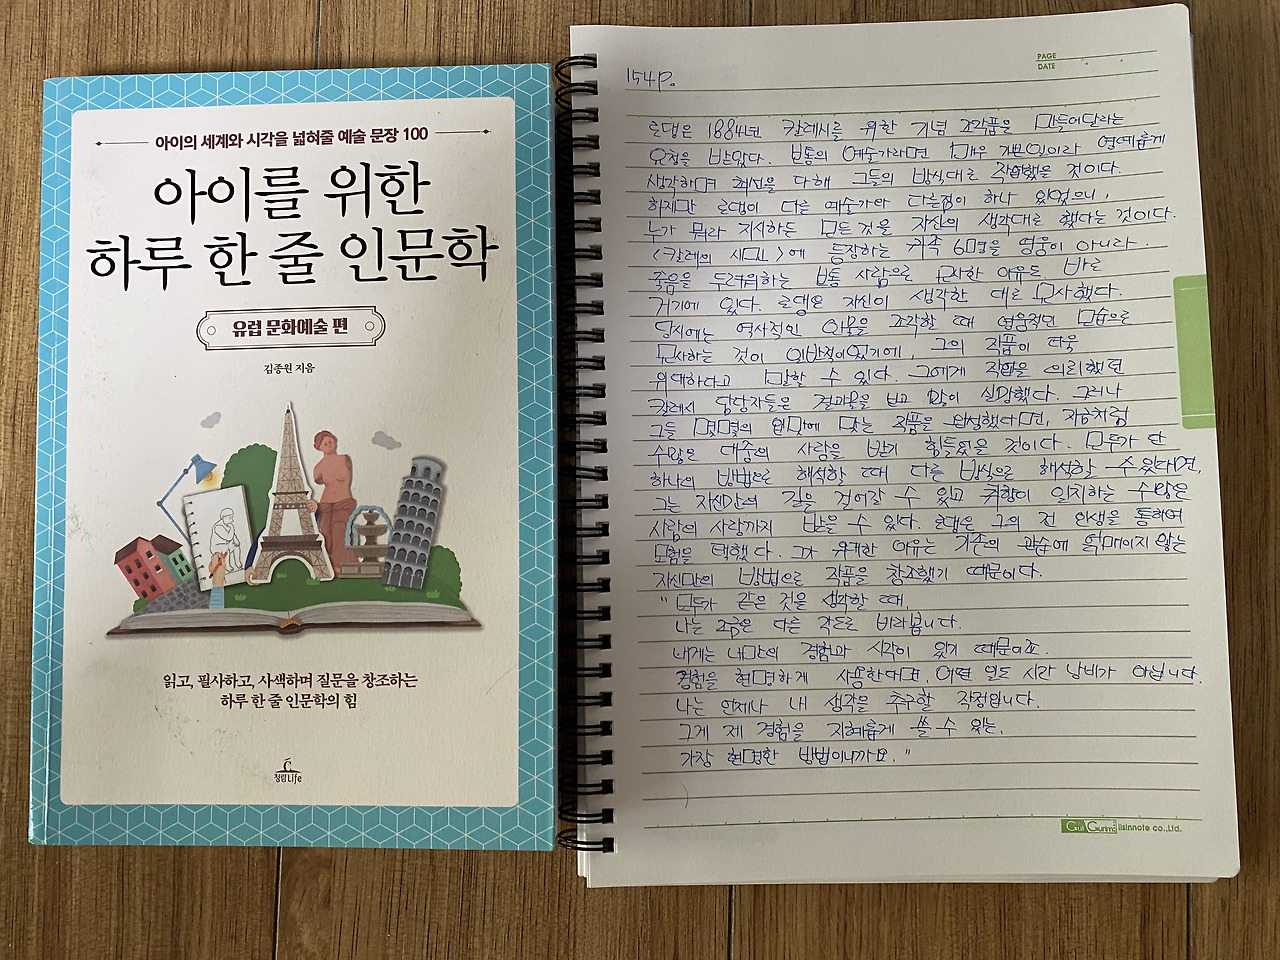 아이의 세계와 시각을 넓혀줄 예술 문장 100
아이를 위한
하루 한 줄 인문학
유럽 문화예술 편
김종원 지음
읽고, 필사하고, 사색하며 질문을 창조하는
하루 한 줄 인문학의 힘
청림Life
PAGE
DATE
154P.
로댕은 1884년 칼레시를 위한 기념 조각품을 만들어달라는
요청을 받았다. 보통의 예술가라면 매우 기쁜일이라 영예롭게
생각하며 최선을 다해 그들의 방식대로 작업했을 것이다.
하지만 로댕이 다른 예술가와 다른점이 하나 있었으니,
누가 뭐라 지시하든 모든 것을 자신의 생각대로 했다는 것이다.
<칼레의 시민>에 등장하는 귀족 6명을 영웅이 아니라
죽음을 두려워하는 보통 사람으로 묘사한 이유도 바로
거기에 있다. 로댕은 자신이 생각한 대로 묘사했다.
당시에는 역사적인 인물을 조각할 때 영웅적인 모습으로
묘사하는 것이 일반적이었기에, 그의 작품이 더욱
위대하다고 말할 수 있다. 그에게 작업을 의뢰했던
칼레시 담당자들은 결과물을 보고 많이 실망했다. 그러나
그들 몇몇의 입맛에 맞는 작품을 완성했다면, 지금처럼
수많은 대중의 사랑을 받기 힘들었을 것이다. 모두가 단
하나의 방법으로 해석할 때 다른 방식으로 해석할 수 있다면,
그는 자신만의 길을 걸어갈 수 있고 취향이 일치하는 수많은
사람의 사랑까지 받을 수 있다. 로댕은 그의 전 인생을 통하여
모험을 택했다. 그가 위대한 이유는 기존의 관습에 얽매이지 않는
자신만의 방법으로 작품을 창조했기 때문이다.
"모두가 같은 것을 생각할 때,
나는 조금은 다른 각도로 바라봅니다.
내게는 나만의 경험과 시각이 있기 때문이죠.
경험을 현명하게 사용한다면, 어떤 일도 시간 낭비가 아닙니다.
나는 언제나 내 생각을 추구할 작정입니다.
그게 제 경험을 지혜롭게 쓸 수 있는,
가장 현명한 방법이니까요."
Gul Gurim ilsinnote co.,Ltd.